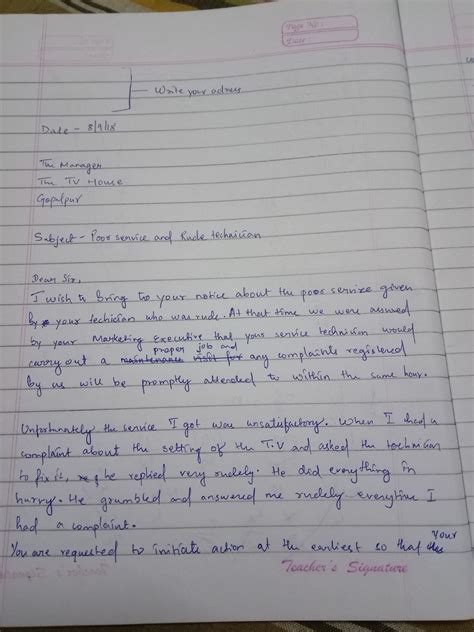 Topic No:
Date:
Write your adress
Date - 8/9/18
The Manager
The TV House
Gopalpur
Subject - Poor service and Rude technician
Dear Sir,
I wish to bring to your notice about the poor service given
by your techician who was rude. At that time we were assured
by your Marketing Executive that your service technicism would
proper job and
carry out a maintenance visit for any complaints registered
by us will be promptly attended to within the same hour.
Unfortunately the service I got was unsatisfactory. When I had a
complaint about the setting of the T.V and asked the technician
to fix it, he replied very rudely. He did everything in
hurry. He grumbled and answered me rudely everytime I
had a complaint.
Your
You are requested to initiate action at the earliest so that
Teacher's Signature